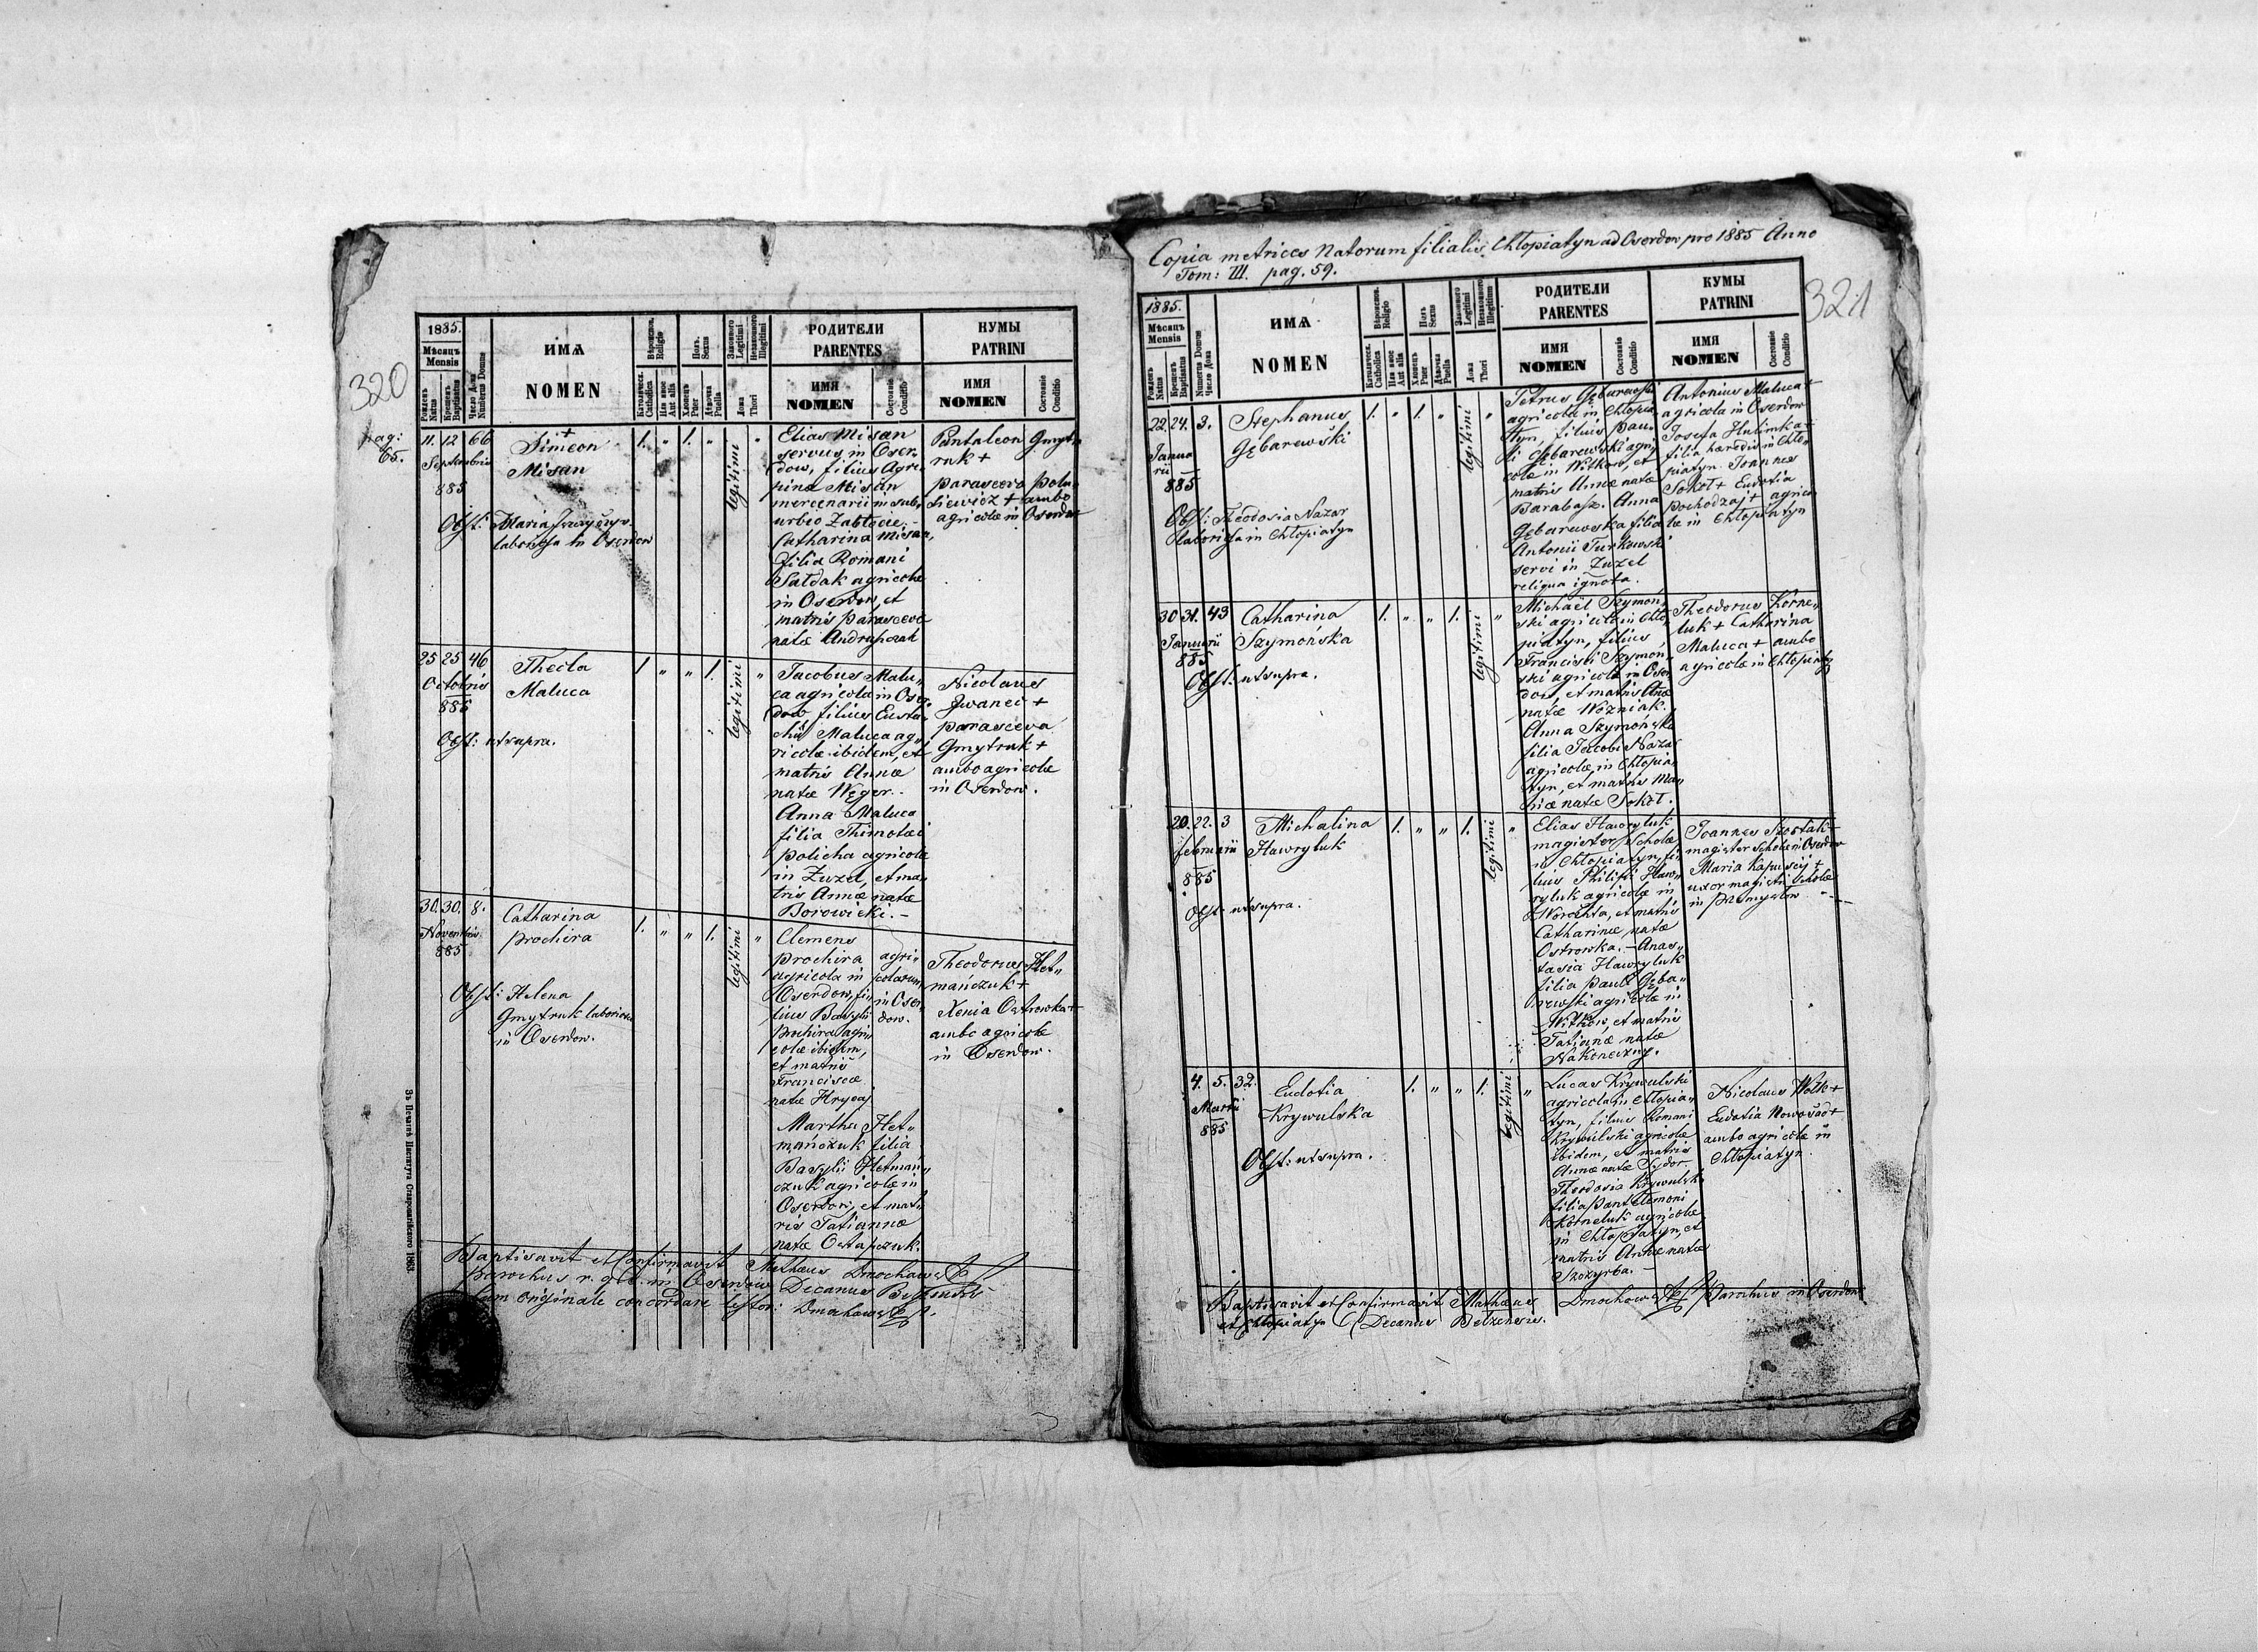 320
1885.
Мѣсяцъ
Mensis
Рожденъ
Natus
Крещенъ
Baptisatus
Число Дома
Numerus Domus
ИМѦ
NOMEN
Вѣроиспов.
Religio
Католическ.
Catholica
Или иное
Aut alia
Полъ
Sexus
Хлопецъ
Puer
Дѣвочка
Puella
Законного
Legitimi
Незаконного
Illegitimi
Ложа
Thori
РОДИТЕЛИ
PARENTES
ИМЯ
NOMEN
Состояніе
Conditio
КУМЫ
PATRINI
ИМЯ
NOMEN
Состояніе
Conditio
pag:
65.
11. 12 66
Septembris
885
+
Simeon
Misan
1. " 1. " legitimi "
Obst: Maria
laboriosa in Oserdow
Elias Misan
servus in Oser„
dow, filius Agri„
pinæ Misan
mercenarii in sub„
urbio Zabłocie. –
Catharina Misan,
filia Romani
Sałdak agricolæ
in Oserdow, et
matris Parascevæ
natæ Andrusczak
Pantaleon Gmyt„
ruk +
Parasceva Pola„
siewicz + ambo
agricolæ in Oserdow
25 25 46
Octobris
885
Thecla
Maluca
1. " " 1. legitimi "
Obst: ut supra.
Jacobus Malu„
ca agricola in Oser„
dow filius Eusta„
chii Maluca ag„
ricolæ ibidem, et
matris Annæ
natæ Węger. .
Anna Maluca
filia Thimotæi
Policha agricolæ
in Żużel, et ma„
tris Annæ natæ
Borowicki. –
Nicolaus
Iwanci +
Parasceva
Gmytruk +
ambo agricolæ
in Oserdow.
30. 30. 8.
Novembris
885
Catharina
Prochira
1. " " 1. legitimi "
Obst: Helena
Gmytruk laboriosa
in Oserdow.
Clemens
Prochira agri„
agricola in colarum
Oserdow, fi„ in Oser„
lius Basylii dow.
Prochira agri„
colæ ibidem,
et matris
Franciscæ
natæ Hrycaj
Martha Het„
mańczuk filia
Basylii Hetmań„
czuk agricolæ in
Oserdow, et mat„
ris Tatiannæ
natæ Ostapczuk.
Theodorus Het„
mańczuk +
Xenia Ostrowska +
ambo agricolæ
in Oserdow.
Baptisavit et Confirmavit Mathæus Dmochowski
parochus r. g. c. in Oserdow Decanus
Cum originale concordare testor: Dmochowski p.
Въ Печатнѣ Института Ставропигійского 1863.
Copia metrices Natorum filialis Chłopiatyn ad Oserdow pro 1885 Anno
Tom: III. pag. 59.
321
1885.
Мѣсяцъ
Mensis
Рожденъ
Natus
Крещенъ
Baptisatus
Numerus Domus
Число Дома
ИМѦ
NOMEN
Вѣроиспов.
Religio
Католическ.
Catholica
Или иное
Aut alia
Полъ
Sexus
Хлопецъ
Puer
Дѣвочка
Puella
Законного
Legitimi
Незаконного
Illegitimi
Ложа
Thori
РОДИТЕЛИ
PARENTES
ИМЯ
NOMEN
Состояніе
Conditio
КУМЫ
PATRINI
ИМЯ
NOMEN
Состояніе
Conditio
22. 24. 3.
Janua
rii
885
Stephanus
Gębarewski
1. " 1. " legitimi "
Obst: Theodosia Nazar
laboriosa in Chłopiatyn
Petrus Gębarewski
agricola in Chłopia„
tyn, filius Pau„
li Gębarewski agri„
colæ in Witkow, et
matris Annæ natæ
Barabasz. Anna
Gębarewska filia
Antonii Turkowski
servi in Żużel
reliqua ignota.
Antonius Maluca +
agricola in Oserdow
Josefa Hulimka +
filia hæredis in Chło„
piatyn. Joannes
Sokoł + Eudotia
Pochodzaj + agrico„
læ in Chłopiatyn
30 31. 43
Januarii
885
Catharina
Szymońska
1. " " 1. legitimi "
Obst: ut supra.
Michaël Szymoń„
ski agricola in Chło„
piatyn, filius
Francisci Szymoń„
ski agricolæ in Oser„
dow, et matris Annæ
natæ Wozniak.
Anna Szymońska
filia Jacobi Nazar
agricolæ in Chłopia„
tyn, et matris Ma„
riæ natæ Sokoł.
Theodorus Korne„
luk + Catharina
Maluca + ambo
agricolæ in Chłopiatyn
20. 22. 3
Februarii
885
Michalina
Hawryluk
1. " " 1. legitimi "
Obst: ut supra.
Elias Hawryluk
magister Scholæ
in Chłopiatyn, fi„
lius Philippi Haw„
ryluk agricolæ in
Worochta, et matris
Catharinæ natæ
Ostrowska. – Anas„
tasia Hawryluk
filia Pauli Gęba„
rewski agricolæ in
Witkow, et matris
Tatianæ natæ
Nakoneczny.
Joannes Szostak +
magister Scholæ in Oserdow
Maria Kapuscij +
uxor magistri Scholæ
in Przemysłow
4. 5. 32.
Martii
885
Eudotia
Krywulska
1. " " 1. legitimi "
Obst: ut supra.
Lucas Krywulski
agricola in Chłopia„
tyn, filius Romani
Krywulski agricolæ
ibidem, et matris
Annæ natæ Sydor.
Theodosia Krywulska
filia Pantelemoni
Korneluk agricolæ
in Chłopiatyn, et
matris Annæ natæ
Szczyrba. –
Nicolaus Wolk +
Eudotia Nowosad +
ambo agricolæ in
Chłopiatyn.
Baptisavit et Confirmavit Mathæus Dmochowski Parochus in Oserdow
et Chłopiatyn Decanus Belzensis.